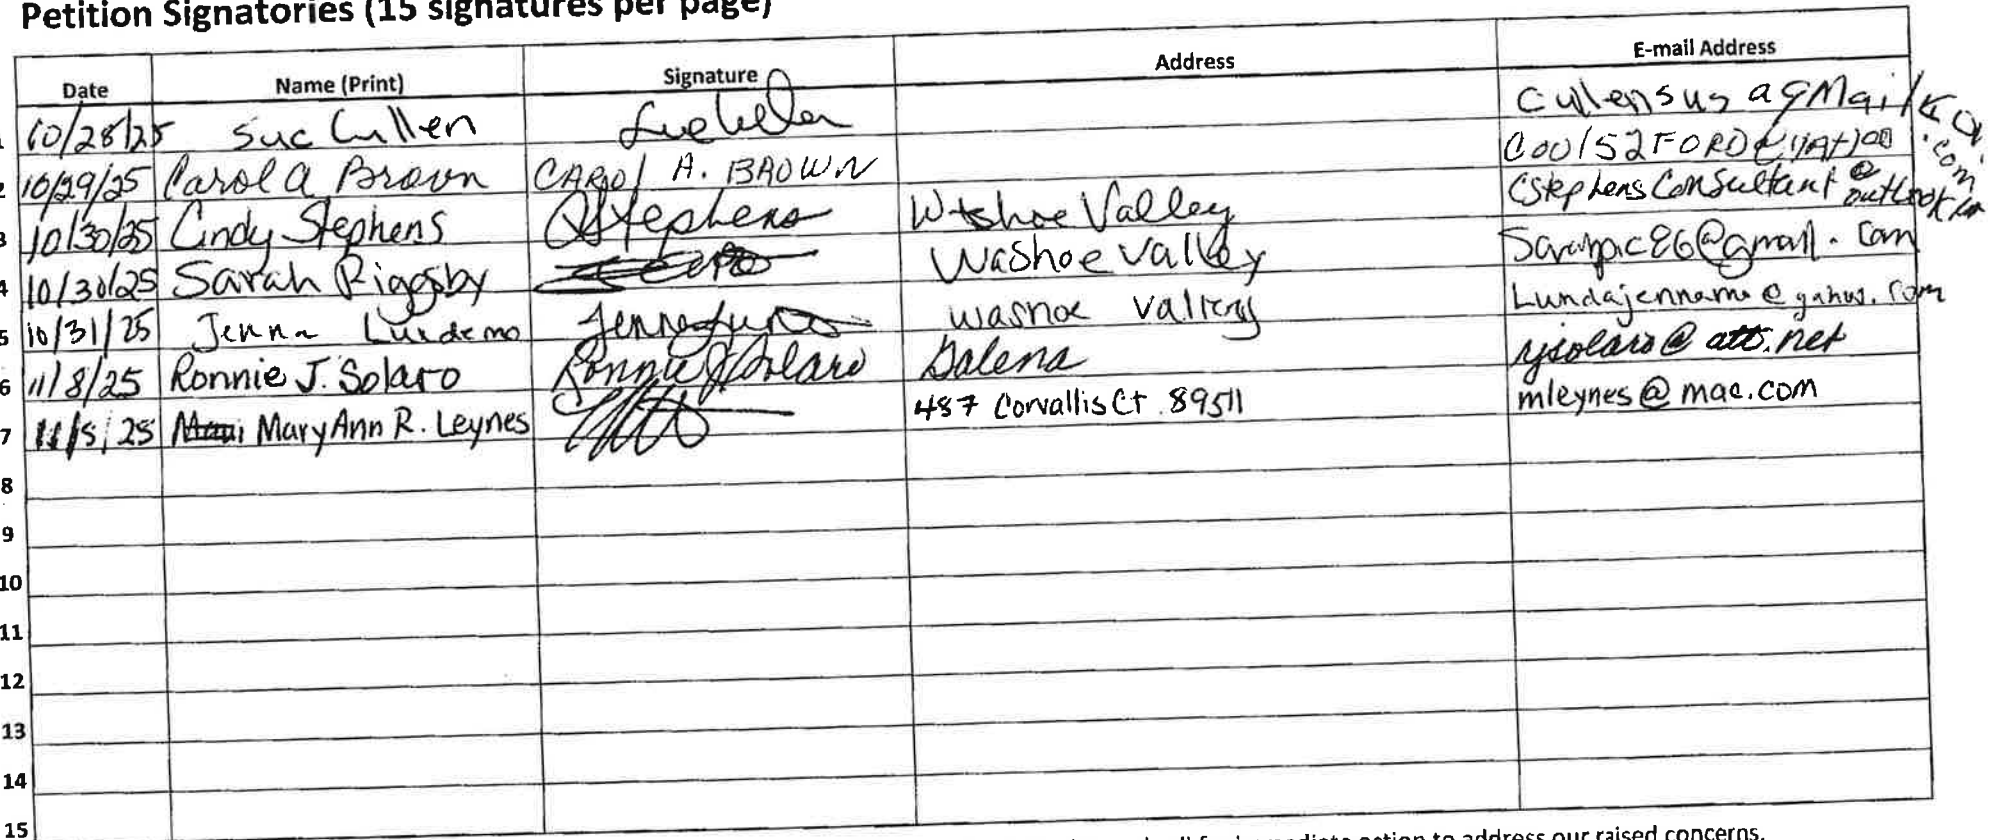 Petition Signatories (15 signatures per page)
Date Name (Print) Signature Address E-mail Address
1 10/28/25 Sue Cullen Sue Cullen
2 10/29/25 Carol A Brown CAROL A. BROWN COO152FORD@YAHOO.com
3 10/30/25 Cindy Stephens CStephens Washoe Valley CStephensConsultant@outlook.com
4 10/30/25 Sarah Riggsby Washoe Valley @gmail.com
5 10/31/25 Jenna Washoe Valley
6 11/8/25 Ronnie J. Solaro Ronnie J Solaro Galena rjsolaro@att.net
7 11/8/25 MaryAnn R. Leynes 487 Corvallis Ct 89511 mleynes@mac.com
8
9
10
11
12
13
14
15
action to address our raised concerns.